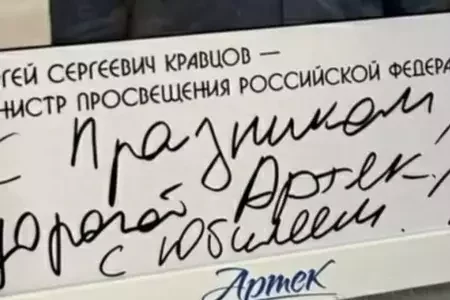 ГЕЙ СЕРГЕЕВИЧ КРАВЦОВ —
НИСТР ПРОСВЕЩЕНИЯ РОССИЙСКОЙ ФЕДЕРА
С Празником
дорогой Артек!
с юбилеем!
Артек